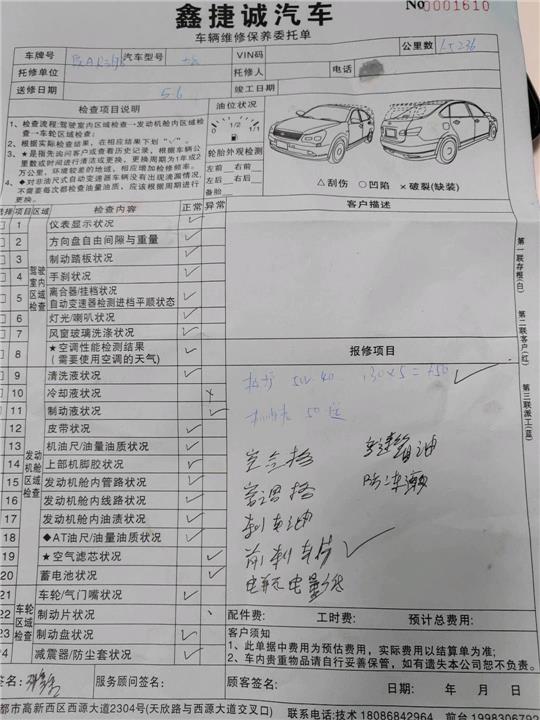 鑫捷诚汽车
车辆维修保养委托单
No0001610
车牌号 汽车型号 VIN码 公里数
托修单位 托修人 电话
送修日期 5.6 竣工日期
检查项目说明
1、检查流程:驾驶室内区域检查→发动机舱内区域检查→车轮区域检查;
2、根据实际检查结果，在相应结果下划“√”。
3、★是指先询问客户或查看历史记录，根据车辆公里数或时间进行清洁或更换，更换周期为1年或2万公里，环境较差的地域，相应增加检修频率。
4、◆对非油尺式自动变速器车辆没有出现泄漏情况，不需要每次都检查油量油质，应该根据周期进行更换。
油位状况
0 1/2 1/1
轮胎外观检测
左前 右前
左后 右后
备胎
△刮伤 ○凹陷 ×破裂(缺装)
选择 项目 区域 检查内容 正常 异常
客户描述
驾驶室内区域检查
1 仪表显示状况 √
2 方向盘自由间隙与重量 √
3 制动踏板状况 √
4 手刹状况 √
5 离合器/挂档状况
自动变速器检测进档平顺状态 √
6 灯光/喇叭状况 √
7 风窗玻璃洗涤状况 √
8 ★空调性能检测结果
(需要使用空调的天气) √
发动机舱区域检查
9 清洗液状况 √
10 冷却液状况 ×
11 制动液状况
12 皮带状况 √
13 机油尺/油量油质状况 √
14 上部机脚胶状况 √
15 发动机舱内管路状况 √
16 发动机舱内线路状况 √
17 发动机舱内油渍状况 √
18 ◆AT油尺/油量油质状况 √
19 ★空气滤芯状况 √
20 蓄电池状况 √
车轮区域检查
21 车轮/气门嘴状况 √
22 制动片状况
23 制动盘状况 √
24 减震器/防尘套状况 √
报修项目
5W 40 130×5=650 √
空气格
空调格
刹车油
前刹车片 √
第一联存根(白)
第二联客户(红)
第三联派工(蓝)
配件费: 工时费: 预计总费用:
客户须知
1、此单据中费用为预估费用，实际费用以结算单为准;
2、车内贵重物品请自行妥善保管，如有遗失本公司恕不负责。
签名: 服务顾问签名: 顾客签名: 日期: 年 月 日
都市高新西区西源大道2304号(天欣路与西源大道交叉口) 联系电话:技术18086842964